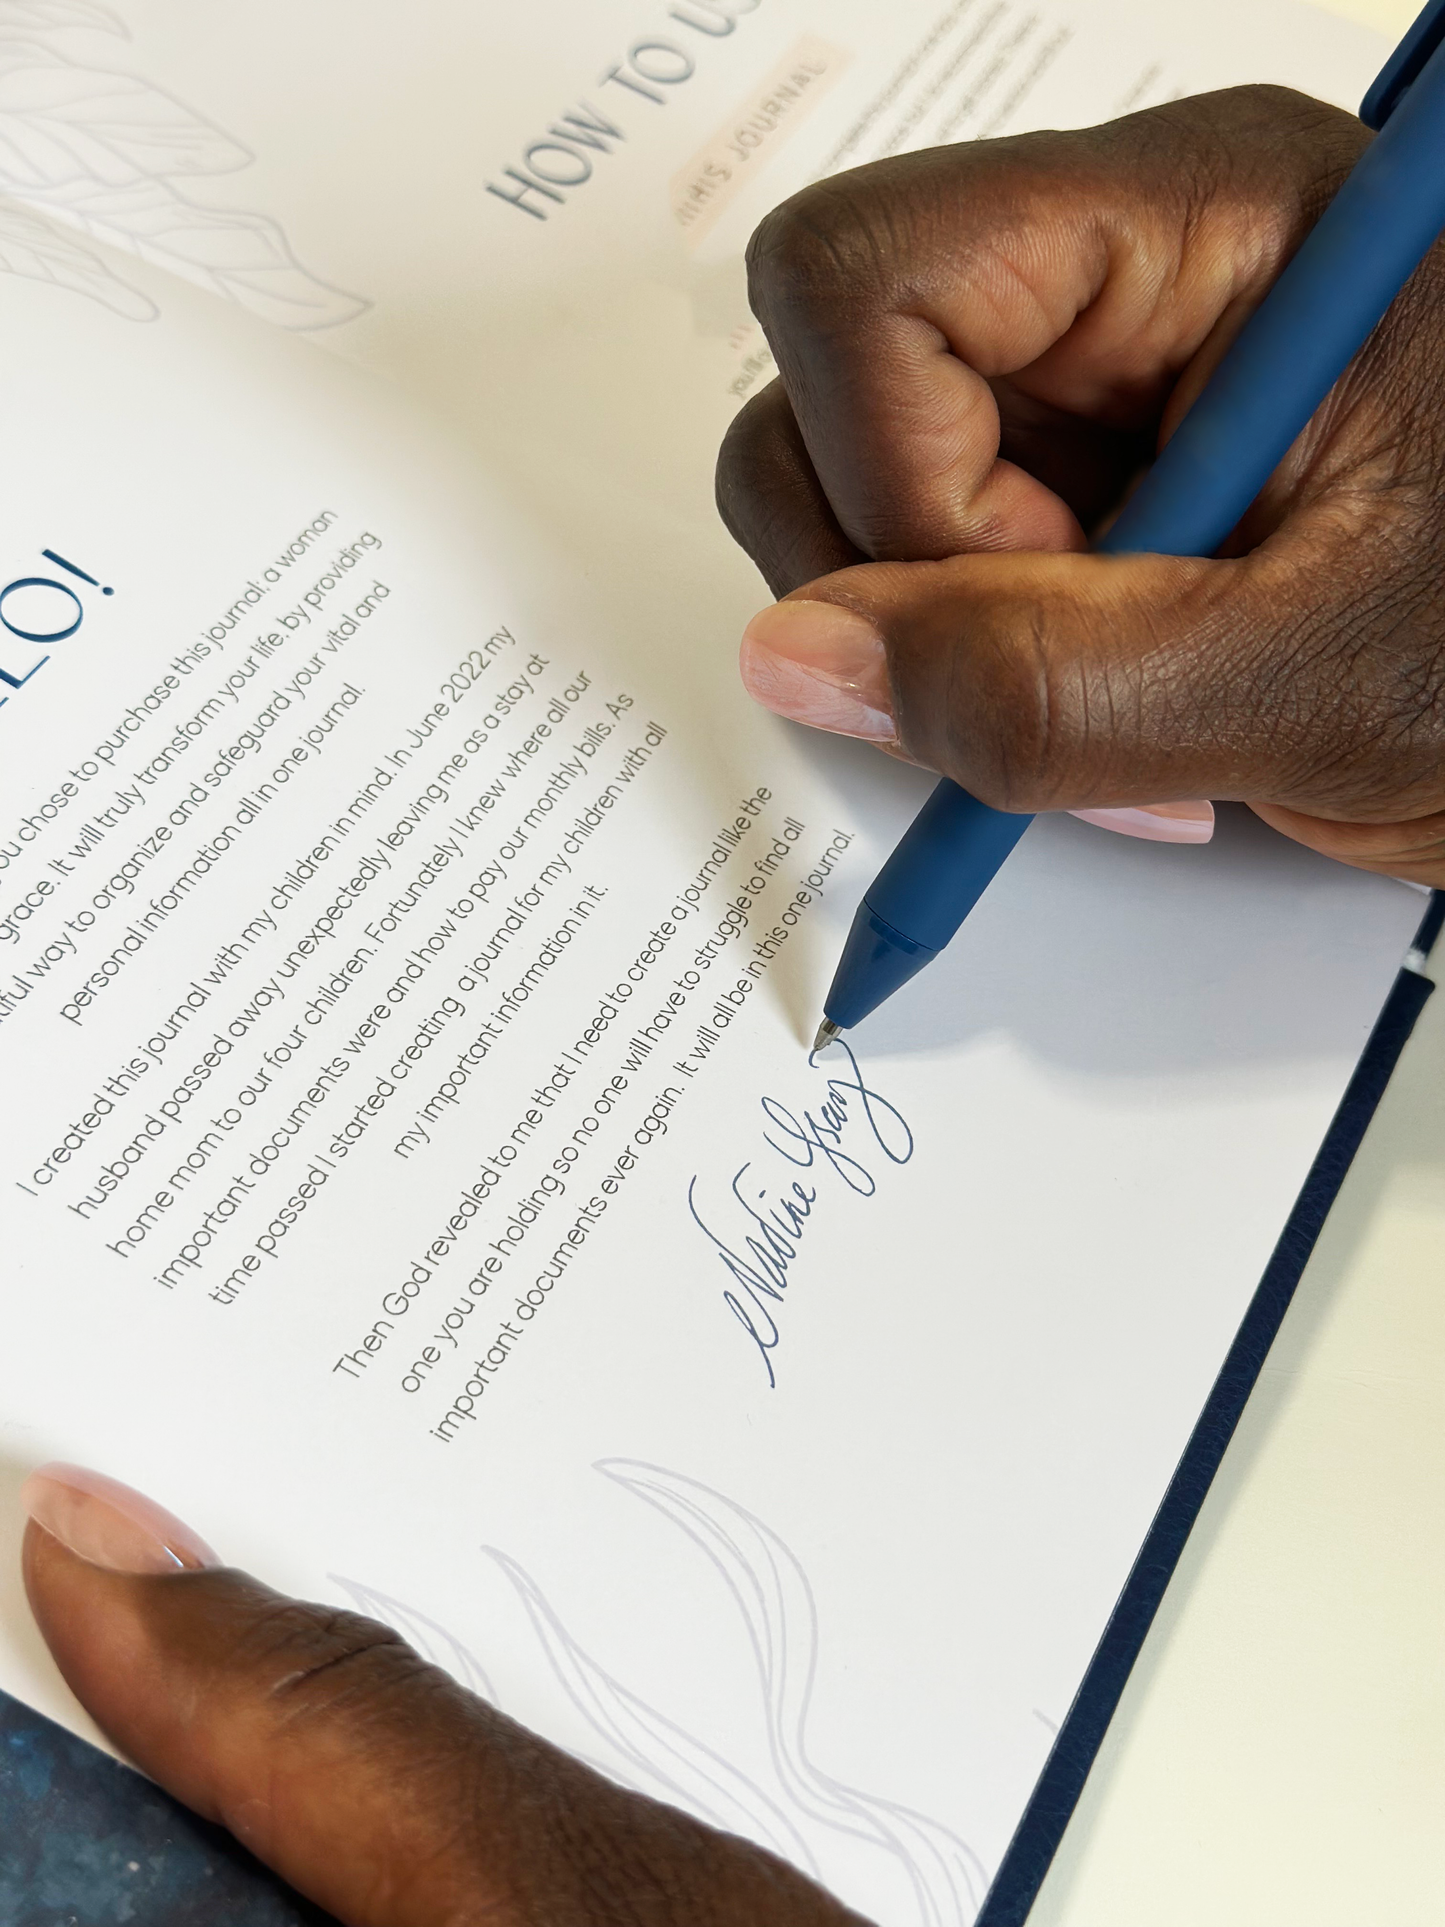 HOW TO
THIS JOURNAL
chose to purchase this journal: a woman
grace. It will truly transform your life, by providing
way to organize and safeguard your vital and
personal information all in one journal.
I created this journal with my children in mind. In June 2022 my
husband passed away unexpectedly leaving me as a stay at
home mom to our four children. Fortunately I knew where all our
important documents were and how to pay our monthly bills. As
time passed I started creating a journal for my children with all
my important information in it.
Then God revealed to me that I need to create a journal like the
one you are holding so no one will have to struggle to find all
important documents ever again. It will all be in this one journal.
Nadine